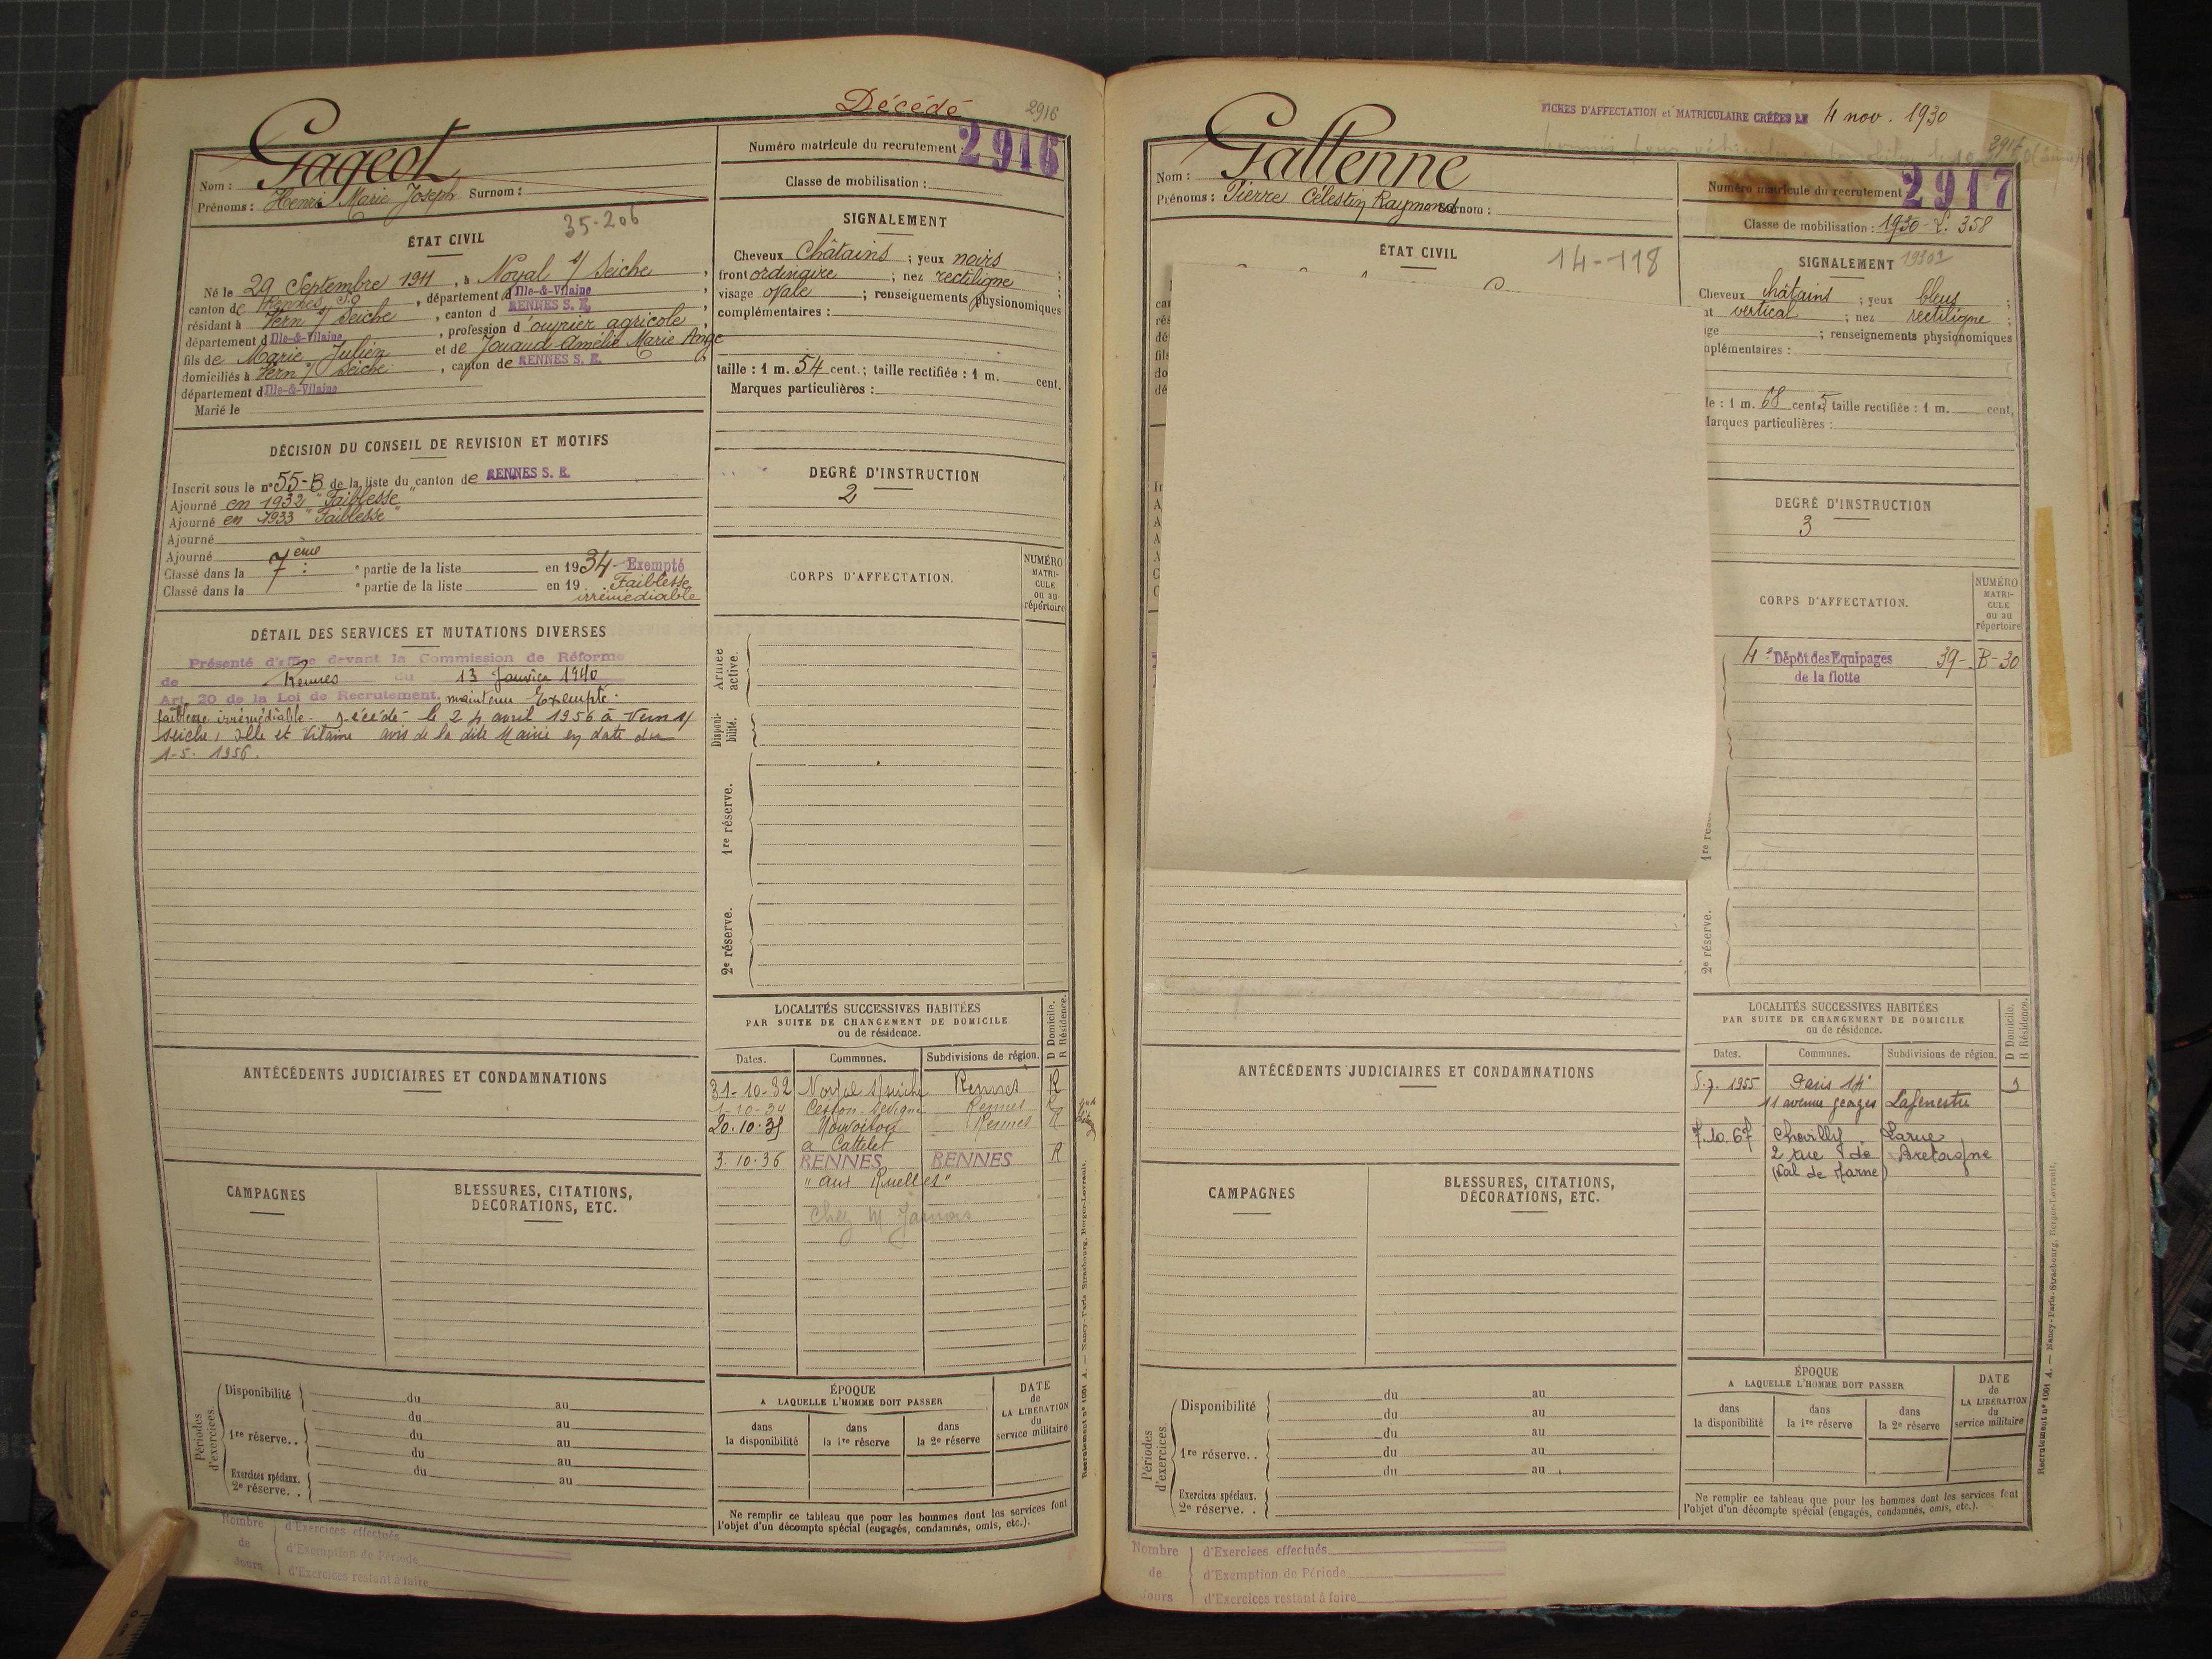 Décédé
2916
Gageot
Nom :
Prénoms : Henri Marie Joseph Surnom :
35-206
Numéro matricule du recrutement : 2916
Classe de mobilisation :
ÉTAT CIVIL
Né le 29 Septembre 1911, à Noyal s/ Seiche,
canton de Rennes S.O, département d Ille-&-Vilaine,
résidant à Vern s/ Seiche, canton d RENNES S. E.
département d Ille-&-Vilaine, profession d'ouvrier agricole,
fils de Marie Julien et de Jouaud Amélie Marie Ange
domiciliés à Vern s/ Seiche, canton de RENNES S. E.
département d Ille-&-Vilaine
Marié le
SIGNALEMENT
Cheveux châtains ; yeux noirs
front ordinaire ; nez rectiligne ;
visage ovale ; renseignements physionomiques
complémentaires :
taille : 1 m. 54 cent. ; taille rectifiée : 1 m. cent.
Marques particulières :
DÉCISION DU CONSEIL DE REVISION ET MOTIFS
Inscrit sous le n° 55-B de la liste du canton de RENNES S. E.
Ajourné en 1932 "Faiblesse"
Ajourné en 1933 "Faiblesse"
Ajourné
Ajourné
Classé dans la 7ème partie de la liste en 1934 - Exempté
Classé dans la ° partie de la liste en 19 Faiblesse
irrémédiable
DEGRÉ D'INSTRUCTION
2
DÉTAIL DES SERVICES ET MUTATIONS DIVERSES
Présenté d'office devant la Commission de Réforme
de Rennes du 13 Janvier 1940
Art. 20 de la Loi de Recrutement, maintenu Exempté.
faiblesse irrémédiable. Décédé le 24 avril 1956 à Vern s/
Seiche, Ille et Vilaine avis de la dite Mairie en date du
1-5-1956.
CORPS D'AFFECTATION.
NUMÉRO
MATRI-
CULE
ou au
répertoire
Armée
active.
Disponi-
bilité.
1re réserve.
2e réserve.
LOCALITÉS SUCCESSIVES HABITÉES
PAR SUITE DE CHANGEMENT DE DOMICILE
ou de résidence.
D Domicile.
R Résidence.
Dates. Communes. Subdivisions de région.
31-10-32 Noyal s/ Seiche Rennes R
1-10-34 Cesson-Sévigné Rennes R
20.10.35 Nouvoitou Rennes R
a Cattelet
3.10.36 RENNES RENNES R
"aux Ruelles"
chez M Jamois
ANTÉCÉDENTS JUDICIAIRES ET CONDAMNATIONS
CAMPAGNES
BLESSURES, CITATIONS,
DÉCORATIONS, ETC.
Périodes
d'exercices.
Disponibilité du au
du au
1re réserve.. du au
du au
Exercices spéciaux.
2e réserve. . du au
ÉPOQUE
A LAQUELLE L'HOMME DOIT PASSER
dans
la disponibilité
dans
la 1re réserve
dans
la 2e réserve
DATE
de
LA LIBÉRATION
du
service militaire
Ne remplir ce tableau que pour les hommes dont les services font
l'objet d'un décompte spécial (engagés, condamnés, omis, etc.).
Nombre
de
Jours
d'Exercices effectués
d'Exemption de Période
d'Exercices restant à faire
Recrutement n° 1001 A. — Nancy-Paris-Strasbourg, Berger-Levrault.
FICHES D'AFFECTATION et MATRICULAIRE CRÉÉES LE 4 nov. 1930
2917
Gallenne
Nom :
Prénoms : Pierre Célestin Raymond Surnom :
Numéro matricule du recrutement 2917
Classe de mobilisation : 1930 - L. 358
ÉTAT CIVIL
14-118
SIGNALEMENT
Cheveux châtains ; yeux bleus ;
vertical ; nez rectiligne ;
; renseignements physionomiques
plémentaires :
le : 1 m. 68 cent. 5 taille rectifiée : 1 m. cent.
Marques particulières :
DEGRÉ D'INSTRUCTION
3
CORPS D'AFFECTATION.
NUMÉRO
MATRI-
CULE
ou au
répertoire
4e Dépôt des Equipages 39- B-30
de la flotte
1re rés
2e réserve.
LOCALITÉS SUCCESSIVES HABITÉES
PAR SUITE DE CHANGEMENT DE DOMICILE
ou de résidence.
D Domicile.
R Résidence.
Dates. Communes. Subdivisions de région.
5.7.1955 Paris 14e D
11 avenue Georges Lafenestre
7.10.67 Chevilly Larue
2 rue de Bretagne
(Val de Marne)
ANTÉCÉDENTS JUDICIAIRES ET CONDAMNATIONS
CAMPAGNES
BLESSURES, CITATIONS,
DÉCORATIONS, ETC.
Périodes
d'exercices.
Disponibilité du au
du au
du au
1re réserve. . du au
du au
Exercices spéciaux.
2e réserve. .
ÉPOQUE
A LAQUELLE L'HOMME DOIT PASSER
dans
la disponibilité
dans
la 1re réserve
dans
la 2e réserve
DATE
de
LA LIBÉRATION
du
service militaire
Ne remplir ce tableau que pour les hommes dont les services font
l'objet d'un décompte spécial (engagés, condamnés, omis, etc.).
Nombre
de
Jours
d'Exercices effectués
d'Exemption de Période
d'Exercices restant à faire
Recrutement n° 1001 A. — Nancy-Paris-Strasbourg, Berger-Levrault.